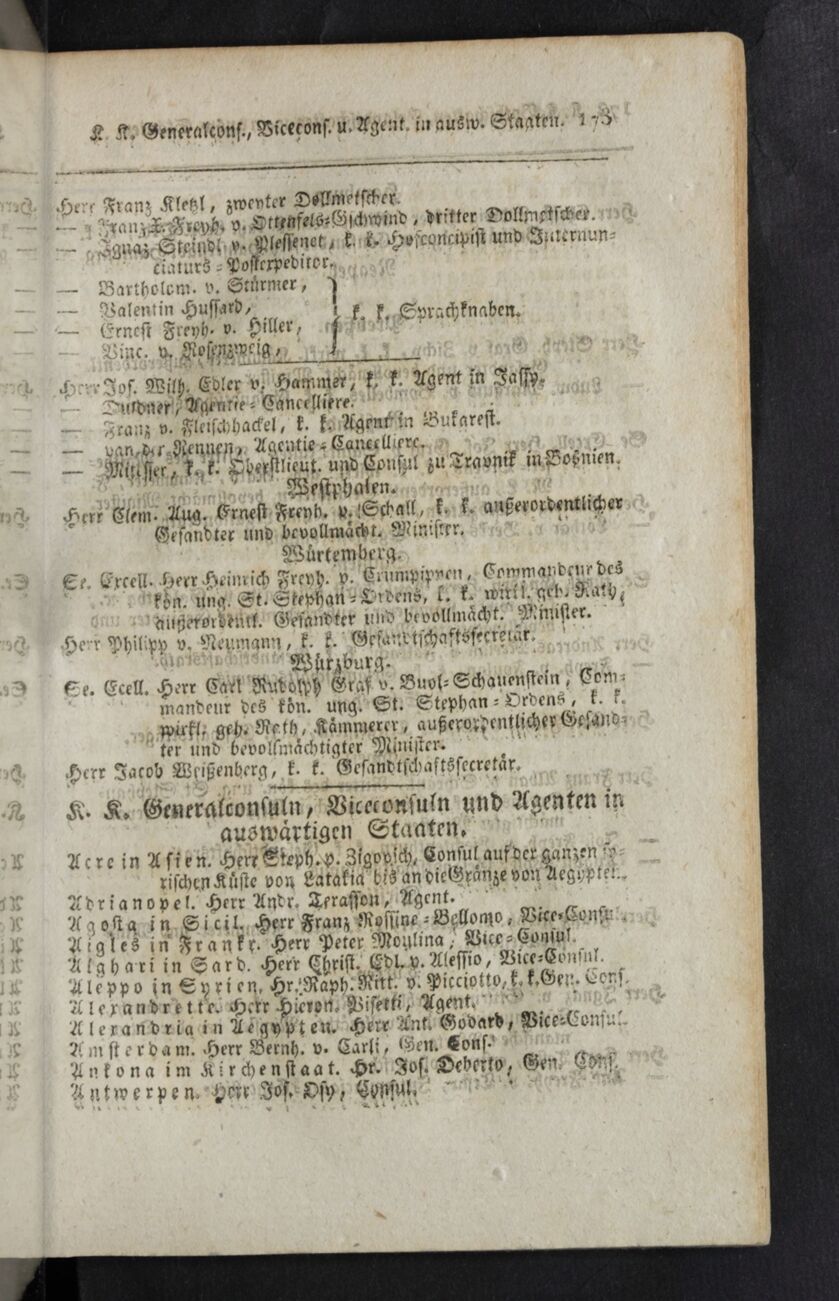 K. K. Generalconf., Vicecons. u. Agent. in ausw. Staaten. 173
Herr Franz Kletzl, zweyter Dollmetscher.
— Franz X. Freyh. v. Ottenfels-Gschwind, dritter Dollmetscher.
— Ignaz Steindl v. Plessenet, k. k. Hofconcipist und Internun-
ciaturs-Postexpeditor.
— Bartholom. v. Stürmer,
— Valentin Hussard,
— Ernest Freyh. v. Hiller,
— Vinc. v. Rosenzweig,
k. k. Sprachknaben.
Herr Jos. Wilh. Edler v. Hammer, k. k. Agent in Jassy.
— Duldner, Agentie-Cancelliere.
— Franz v. Fleischhackel, k. k. Agent in Bukarest.
— van der Rennen, Agentie-Cancelliere.
— k. k. Oberstlieut. und Consul zu Travnik in Bosnien.
Westphalen.
Herr Clem. Aug. Ernest Freyh. v. Schall, k. k. außerordentlicher
Gesandter und bevollmächt. Minister.
Würtemberg.
Se. Excell. Herr Heinrich Freyh. v. Crumpippen, Commandeur des
kön. ung. St. Stephan-Ordens, k. k. wirkl. geh. Rath,
außerordentl. Gesandter und bevollmächt. Minister.
Herr Philipp v. Neumann, k. k. Gesandtschaftssecretär.
Würzburg.
Se. Ecell. Herr Carl Rudolph Graf v. Buol-Schauenstein, Com-
mandeur des kön. ung. St. Stephan-Ordens, k. k.
wirkl. geh. Rath, Kämmerer, außerordentlicher Gesand-
ter und bevollmächtigter Minister.
Herr Jacob Weißenberg, k. k. Gesandtschaftssecretär.
K. K. Generalconsuln, Viceconsuln und Agenten in
auswärtigen Staaten.
Acre in Asien. Herr Steph. v. Zigovich, Consul auf der ganzen sy-
rischen Küste von Latakia bis an die Gränze von Aegypten.
Adrianopel. Herr Andr. Terasson, Agent.
Agosta in Sicil. Herr Franz Rossine-Bellomo, Vice-Consul.
Aigles in Frankr. Herr Peter Moulina, Vice-Consul.
Alghari in Sard. Herr Christ. Edl. v. Alessio, Vice-Consul.
Aleppo in Syrien. Hr. Raph. Ritt. v. Picciotto, k. k. Gen. Cons.
Alexandrette. Herr Hieron. Bisetti, Agent.
Alexandria in Aegypten. Herr Ant. Godard, Vice-Consul.
Amsterdam. Herr Bernh. v. Carli, Gen. Cons.
Ankona im Kirchenstaat. Hr. Jos. Deberto, Gen. Cons.
Antwerpen. Herr Jos. Osy, Consul.